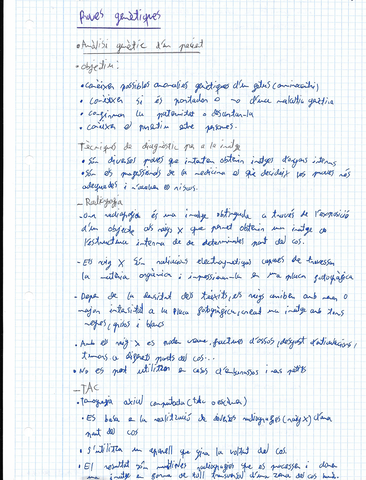 Proves genètiques
• Anàlisi genètic d'un pacient
• Objectiu:
• Conèixer possibles anomalies genètiques d'un fetus (amniocentesi)
• Conèixer si és portador o no d'una malaltia genètica
• Confirmar la paternitat o descartar-la
• Conèixer el parentiu entre persones.
Tècniques de diagnòstic per a la imatge
• Són diverses proves que intenten obtenir imatges d'òrgans interns
• Són els professionals de la medicina el que decideix les proves més
adequades i n'avaluen els riscos.
– Radiografia
- Una radiografia és una imatge obtinguda a través de l'exposició
d'un objecte als raigs X que permet obtenir una imatge de
l'estructura interna de determinades part del cos.
- Els raig X són radiacions electromagnètiques capaces de travessar
la matèria orgànica i impressionar en una placa fotogràfica
- Depen de la densitat dels teixits, els raigs arriben amb menor o
major intensitat a la placa fotogràfica, creant una imatge amb tons
negres, grisos i blancs
• Amb els raig-X es poden veure, fractures d'ossos, desgast d'articulacions,
tumors a diferents parts del cos...
• No es pot utilitzar en casos d'embarassos i nens petits
– TAC
• Tomografia axial computada (TAC o escàner)
• Es basa en la realització de diverses radiografies (raig X) d'una
part del cos
• S'utilitza un aparell que gira la voltant del cos
• El resultat són múltiples radiografies que es processen i donen
una imatge en forma de tall transversal d'una zona del cos